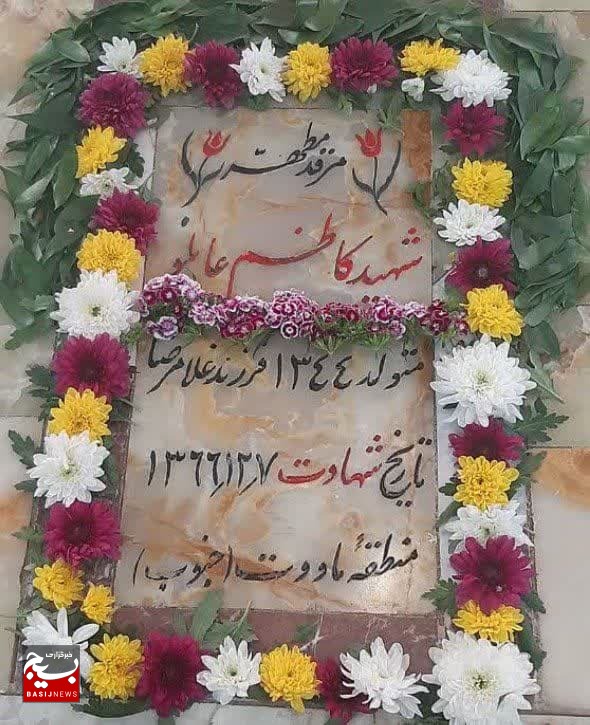 مرقد مطهر
شهید کاظم عابلو
متولد ۱۳۴۴ فرزند غلامرضا
تاریخ شهادت ۱۳۶۶٫۱۲٫۷
منطقهٔ ماووت (جنوب)
خبرگزاری
بسیج
BASIJNEWS